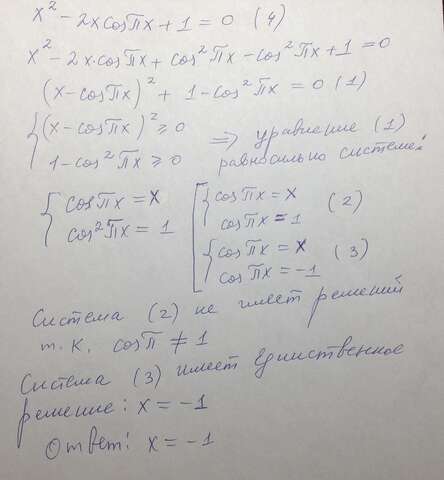 x² - 2x cosπx + 1 = 0 (4)
x² - 2x·cosπx + cos²πx - cos²πx + 1 = 0
(x - cosπx)² + 1 - cos²πx = 0 (1)
{ (x - cosπx)² ≥ 0
1 - cos²πx ≥ 0 ⇒ уравнение (1) равносильно системе
{ cosπx = x
cos²πx = 1
[ { cosπx = x
cosπx = 1 (2)
{ cosπx = x
cosπx = -1 (3)
Система (2) не имеет решений
т.к. cosπ ≠ 1
Система (3) имеет единственное
решение: x = -1
Ответ: x = -1